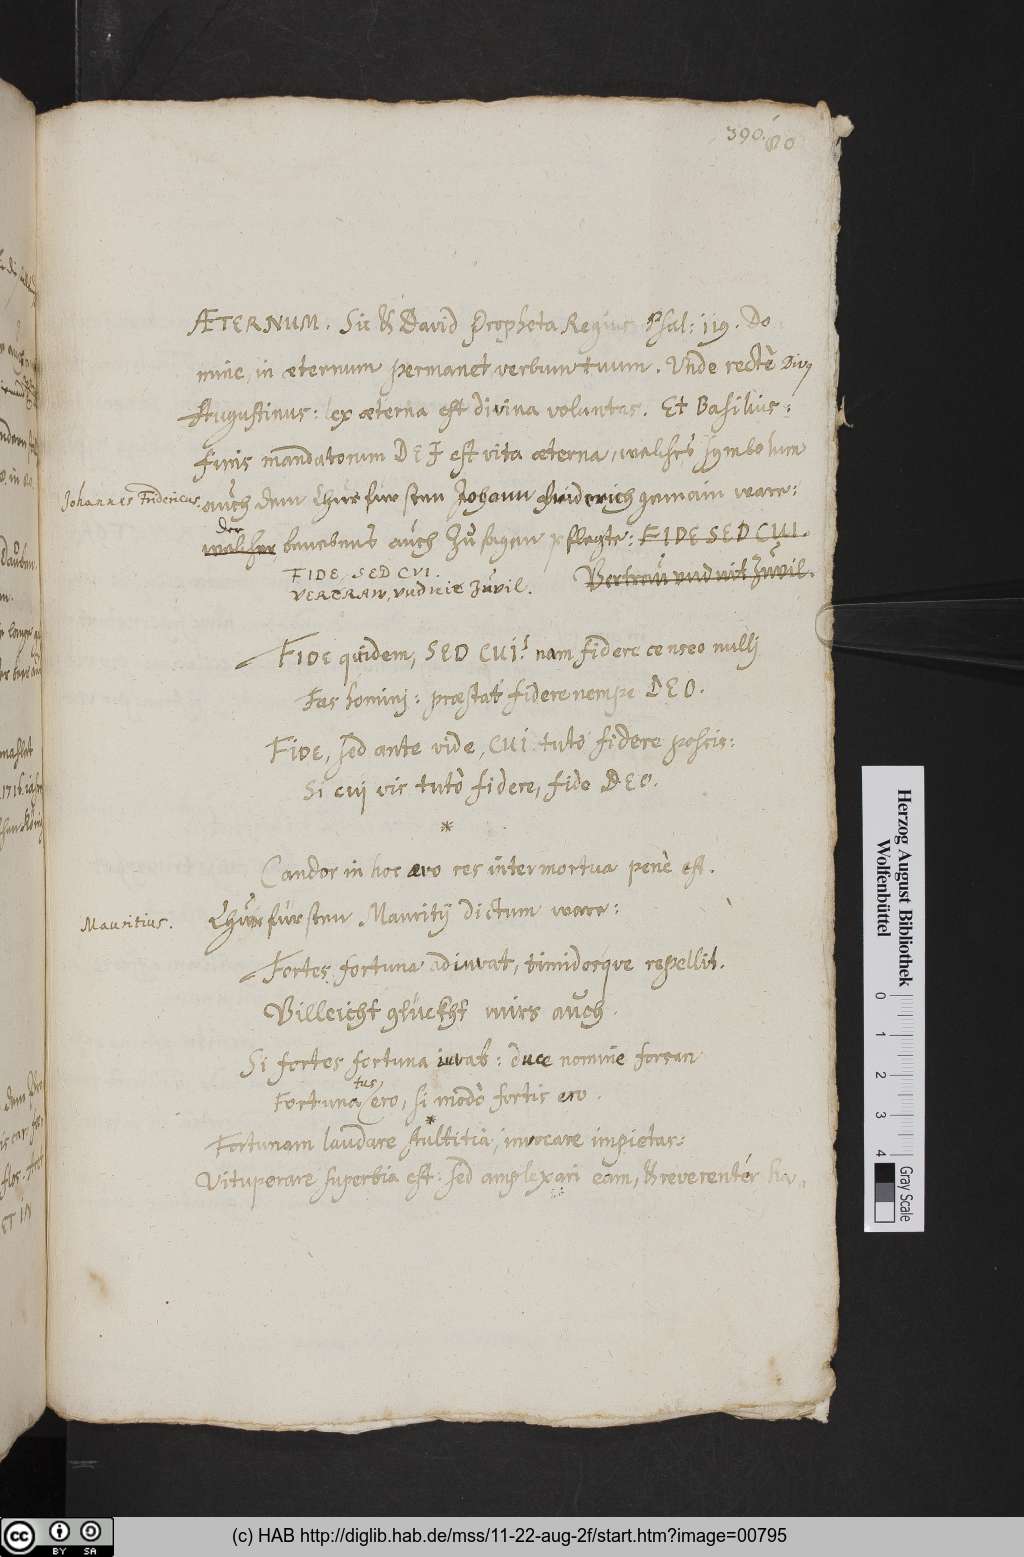 390. 60
ÆTERNUM. Sic & David Propheta Regius Psal: 119. Do
mine, in æternum permanet verbum tuum. Unde rectè Divus
Augustinus: lex æterna est divina voluntas. Et Basilius:
finis mandatorum DEI est vita æterna, walches Symbolum
Johannes Fridericus. auch dem Churfürsten Johann Friderich gemain ware:
der
walcher benebens auch zu sagen pflegte: FIDE SED CUI.
FIDE, SED CVI. Vertraw vnd nit zuvil.
VERTRAW, vnd nit zuvil.
FIDE quidem, SED CUI? nam fidere censeo nullj
Fas hominj: præstat fidere nempe DEO.
FIDE, sed ante vide, CUI tutò fidere possis:
Si cuj vis tutò fidere, fide DEO.
*
Candor in hoc ævo res intermortua penè est.
Mauritius. Churfürsten Mauritij dictum ware:
Fortes fortuna adiuvat, timidosque repellit.
Villeicht glückht mirs auch.
Si fortes fortuna iuvat: duce nomine forsan
tus
Fortuna ero, si modò fortis ero.
*
Fortunam laudare stultitia, invocare impietas:
Vituperare superbia est: sed amplexari eam, & reverentér
Herzog August Bibliothek
Wolfenbüttel
0 1 2 3 4
Gray Scale
cc BY SA
(c) HAB http://diglib.hab.de/mss/11-22-aug-2f/start.htm?image=00795